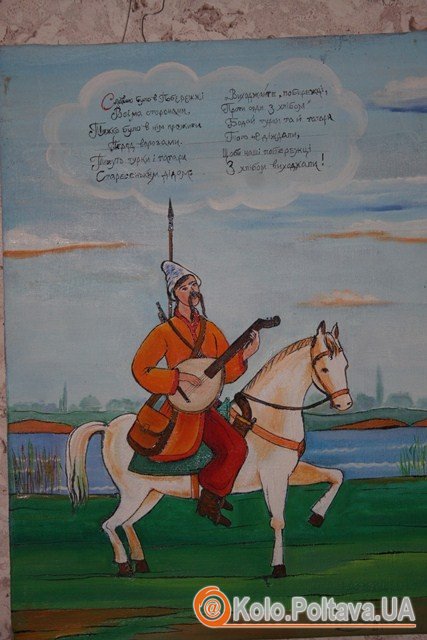 Славно було в Побережжі
Всіма сторонами,
Тяжко було в нім прожити
Перед ворогами.
Пишуть турки і татари
дідом:
Виходжайте, побережці,
Проти орди з хлібом
Бодай турки та й татари
Того не діждали,
Щоби наші побережці
З хлібом виходжали!
@Kolo.Poltava.UA